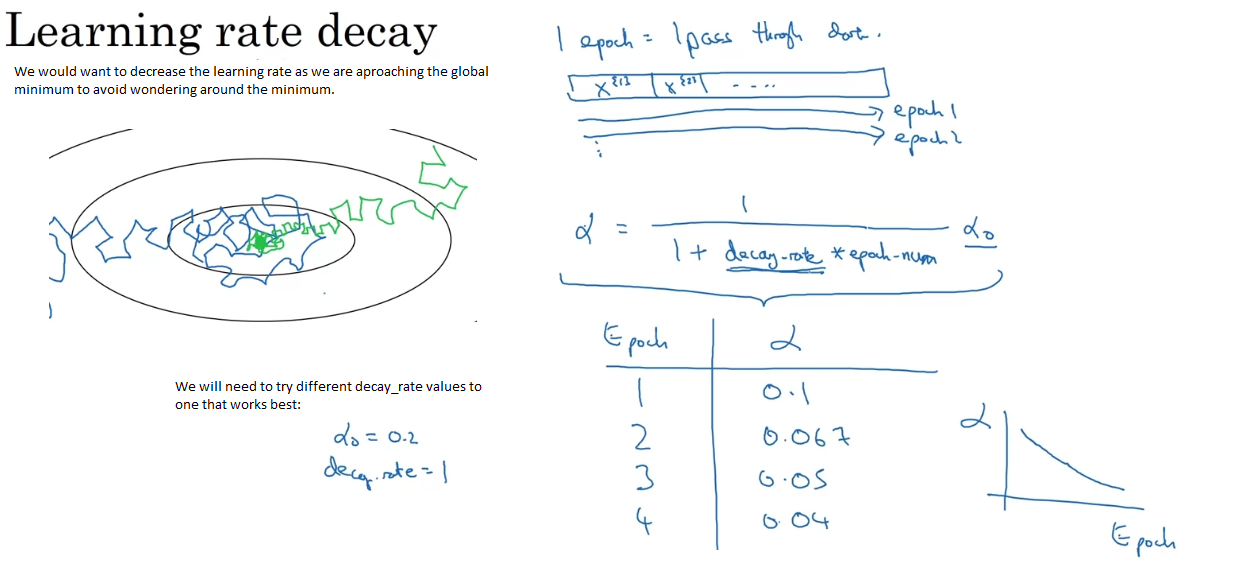 Learning rate decay
We would want to decrease the learning rate as we are aproaching the global
minimum to avoid wondering around the minimum.
We will need to try different decay_rate values to
one that works best:
α₀ = 0.2
decay-rate = 1
1 epoch = 1 pass through data.
X^{1} | X^{2} | ....
epoch 1
epoch 2
⋮
α = 1 / (1 + decay-rate * epoch-num) α₀
Epoch | α
1 | 0.1
2 | 0.067
3 | 0.05
4 | 0.04
α
Epoch